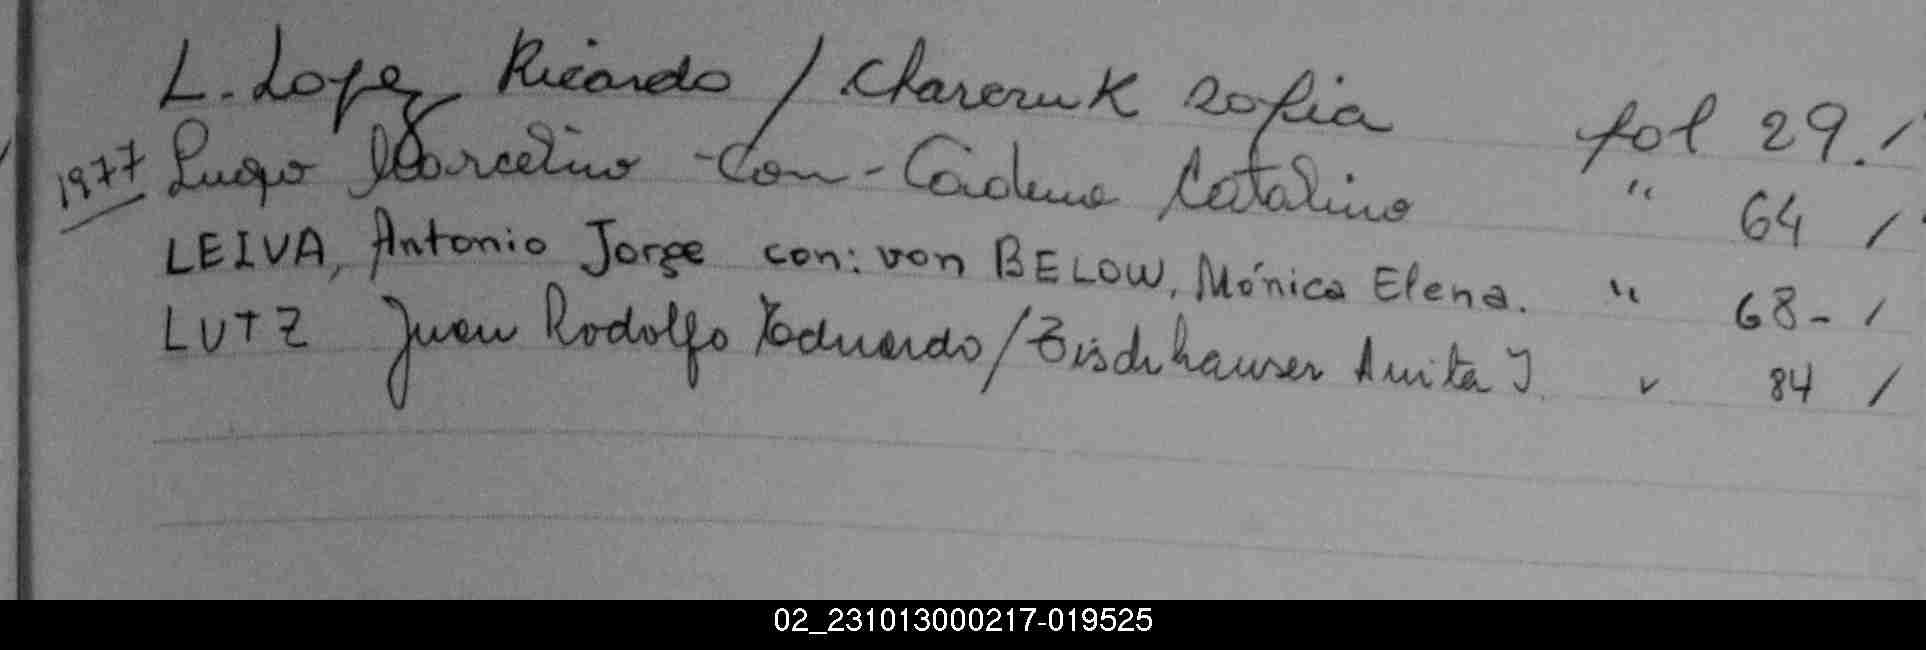 L. Lopez Ricardo / Chareruk Sofia fol 29. /
1977 Lugo Marcelino - con - Cardena Catalina " 64 /
LEIVA, Antonio Jorge con: von BELOW, Mónica Elena. " 68 - /
LUTZ Juan Rodolfo Eduardo / Bischhauser Anita J. " 84 /
02_231013000217-019525